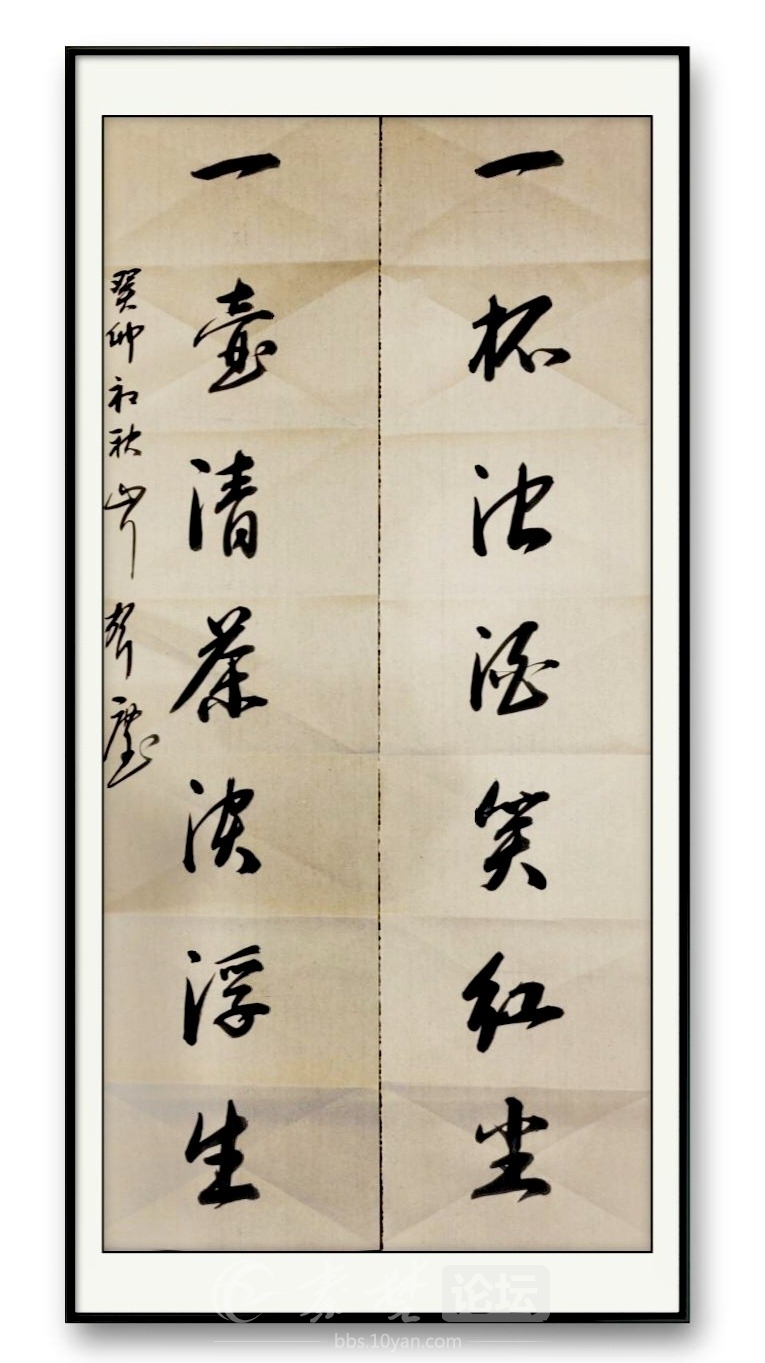 一杯浊酒笑红尘
一壶清茶淡浮生
癸卯初秋
秦楚论坛
bbs.10yan.com